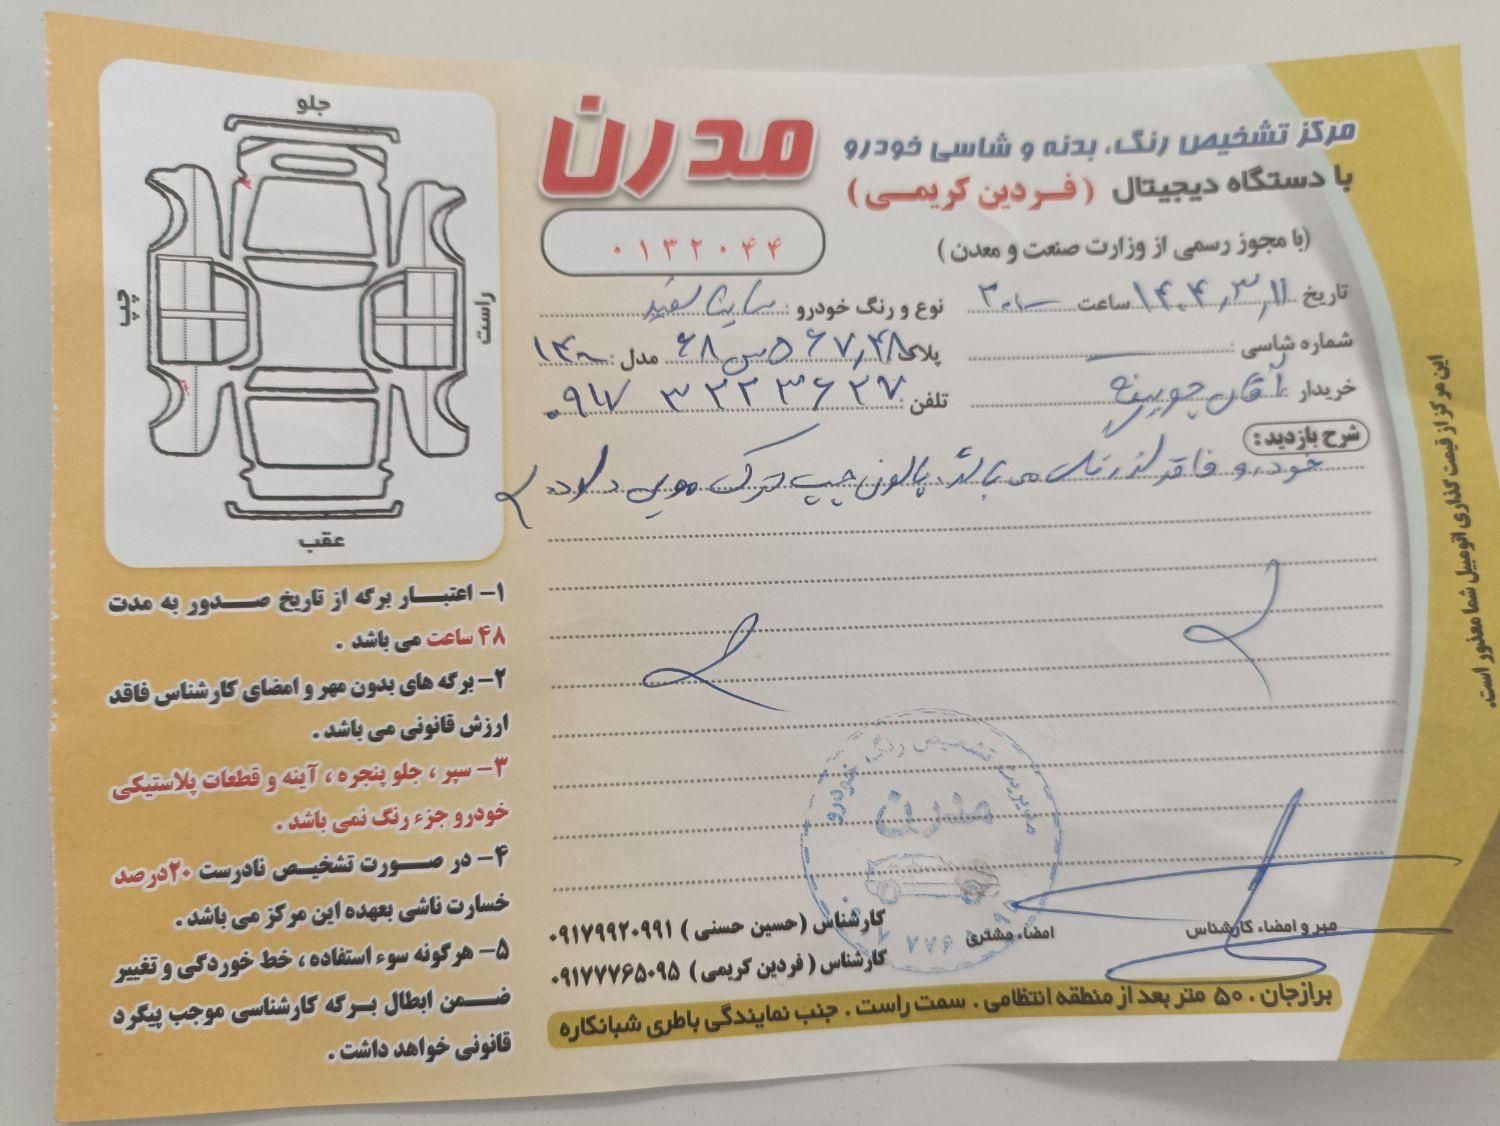 مرکز تشخیص رنگ، بدنه و شاسی خودرو
با دستگاه دیجیتال (فردین کریمی)
مدرن
(با مجوز رسمی از وزارت صنعت و معدن)
۰۱۳۲۰۴۴
تاریخ ۱۴۰۴,۳,۱۱ ساعت
نوع و رنگ خودرو: ساینا سفید
شماره شاسی:
پلاک: ۶۸ س ۵۶۷,۴۸ مدل: ۱۴۰۰
خریدار: آقای
تلفن: ۰۹۱۷ ۳۲۲۳۶۲۷
شرح بازدید:
خودرو فاقد رنگ می باشد. پالونی چپ ترک مویی دارد.
مهر و امضاء کارشناس
امضاء مشتری
مدیریت تشخیص رنگ خودرو
مدرن
کارشناس (حسین حسنی) ۰۹۱۷۹۹۲۰۹۹۱
کارشناس (فردین کریمی) ۰۹۱۷۷۷۶۵۰۹۵
برازجان . ۵۰ متر بعد از منطقه انتظامی . سمت راست . جنب نمایندگی باطری شبانکاره
این مرکز از قیمت گذاری اتومبیل شما معذور است.
جلو
راست
چپ
عقب
۱- اعتبار برگه از تاریخ صدور به مدت
۴۸ ساعت می باشد .
۲- برگه های بدون مهر و امضای کارشناس فاقد
ارزش قانونی می باشد .
۳- سپر ، جلو پنجره ، آینه و قطعات پلاستیکی
خودرو جزء رنگ نمی باشد .
۴- در صورت تشخیص نادرست ۲۰درصد
خسارت ناشی بعهده این مرکز می باشد .
۵- هرگونه سوء استفاده ، خط خوردگی و تغییر
ضمن ابطال برگه کارشناسی موجب پیگرد
قانونی خواهد داشت .